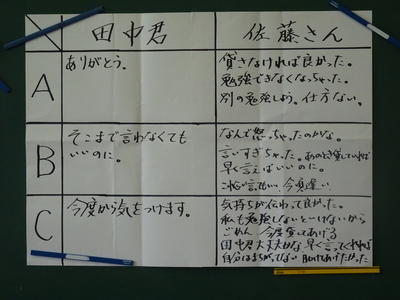 田中君
佐藤さん
A
ありがとう。
貸さなければ良かった。
勉強できなくなっちゃった。
別の勉強しよう。仕方ない。
B
そこまで言わなくても
いいのに。
なんで怒っちゃったのかな。
言いすぎちゃった。あのとき貸していれば
早く言えばいいのに。
C
今度から気をつけます。
気持ちが伝わって良かった。
私も勉強しないといけないから
ごめん 今度貸してあげる
田中君大丈夫かな 早く言ってくれれば